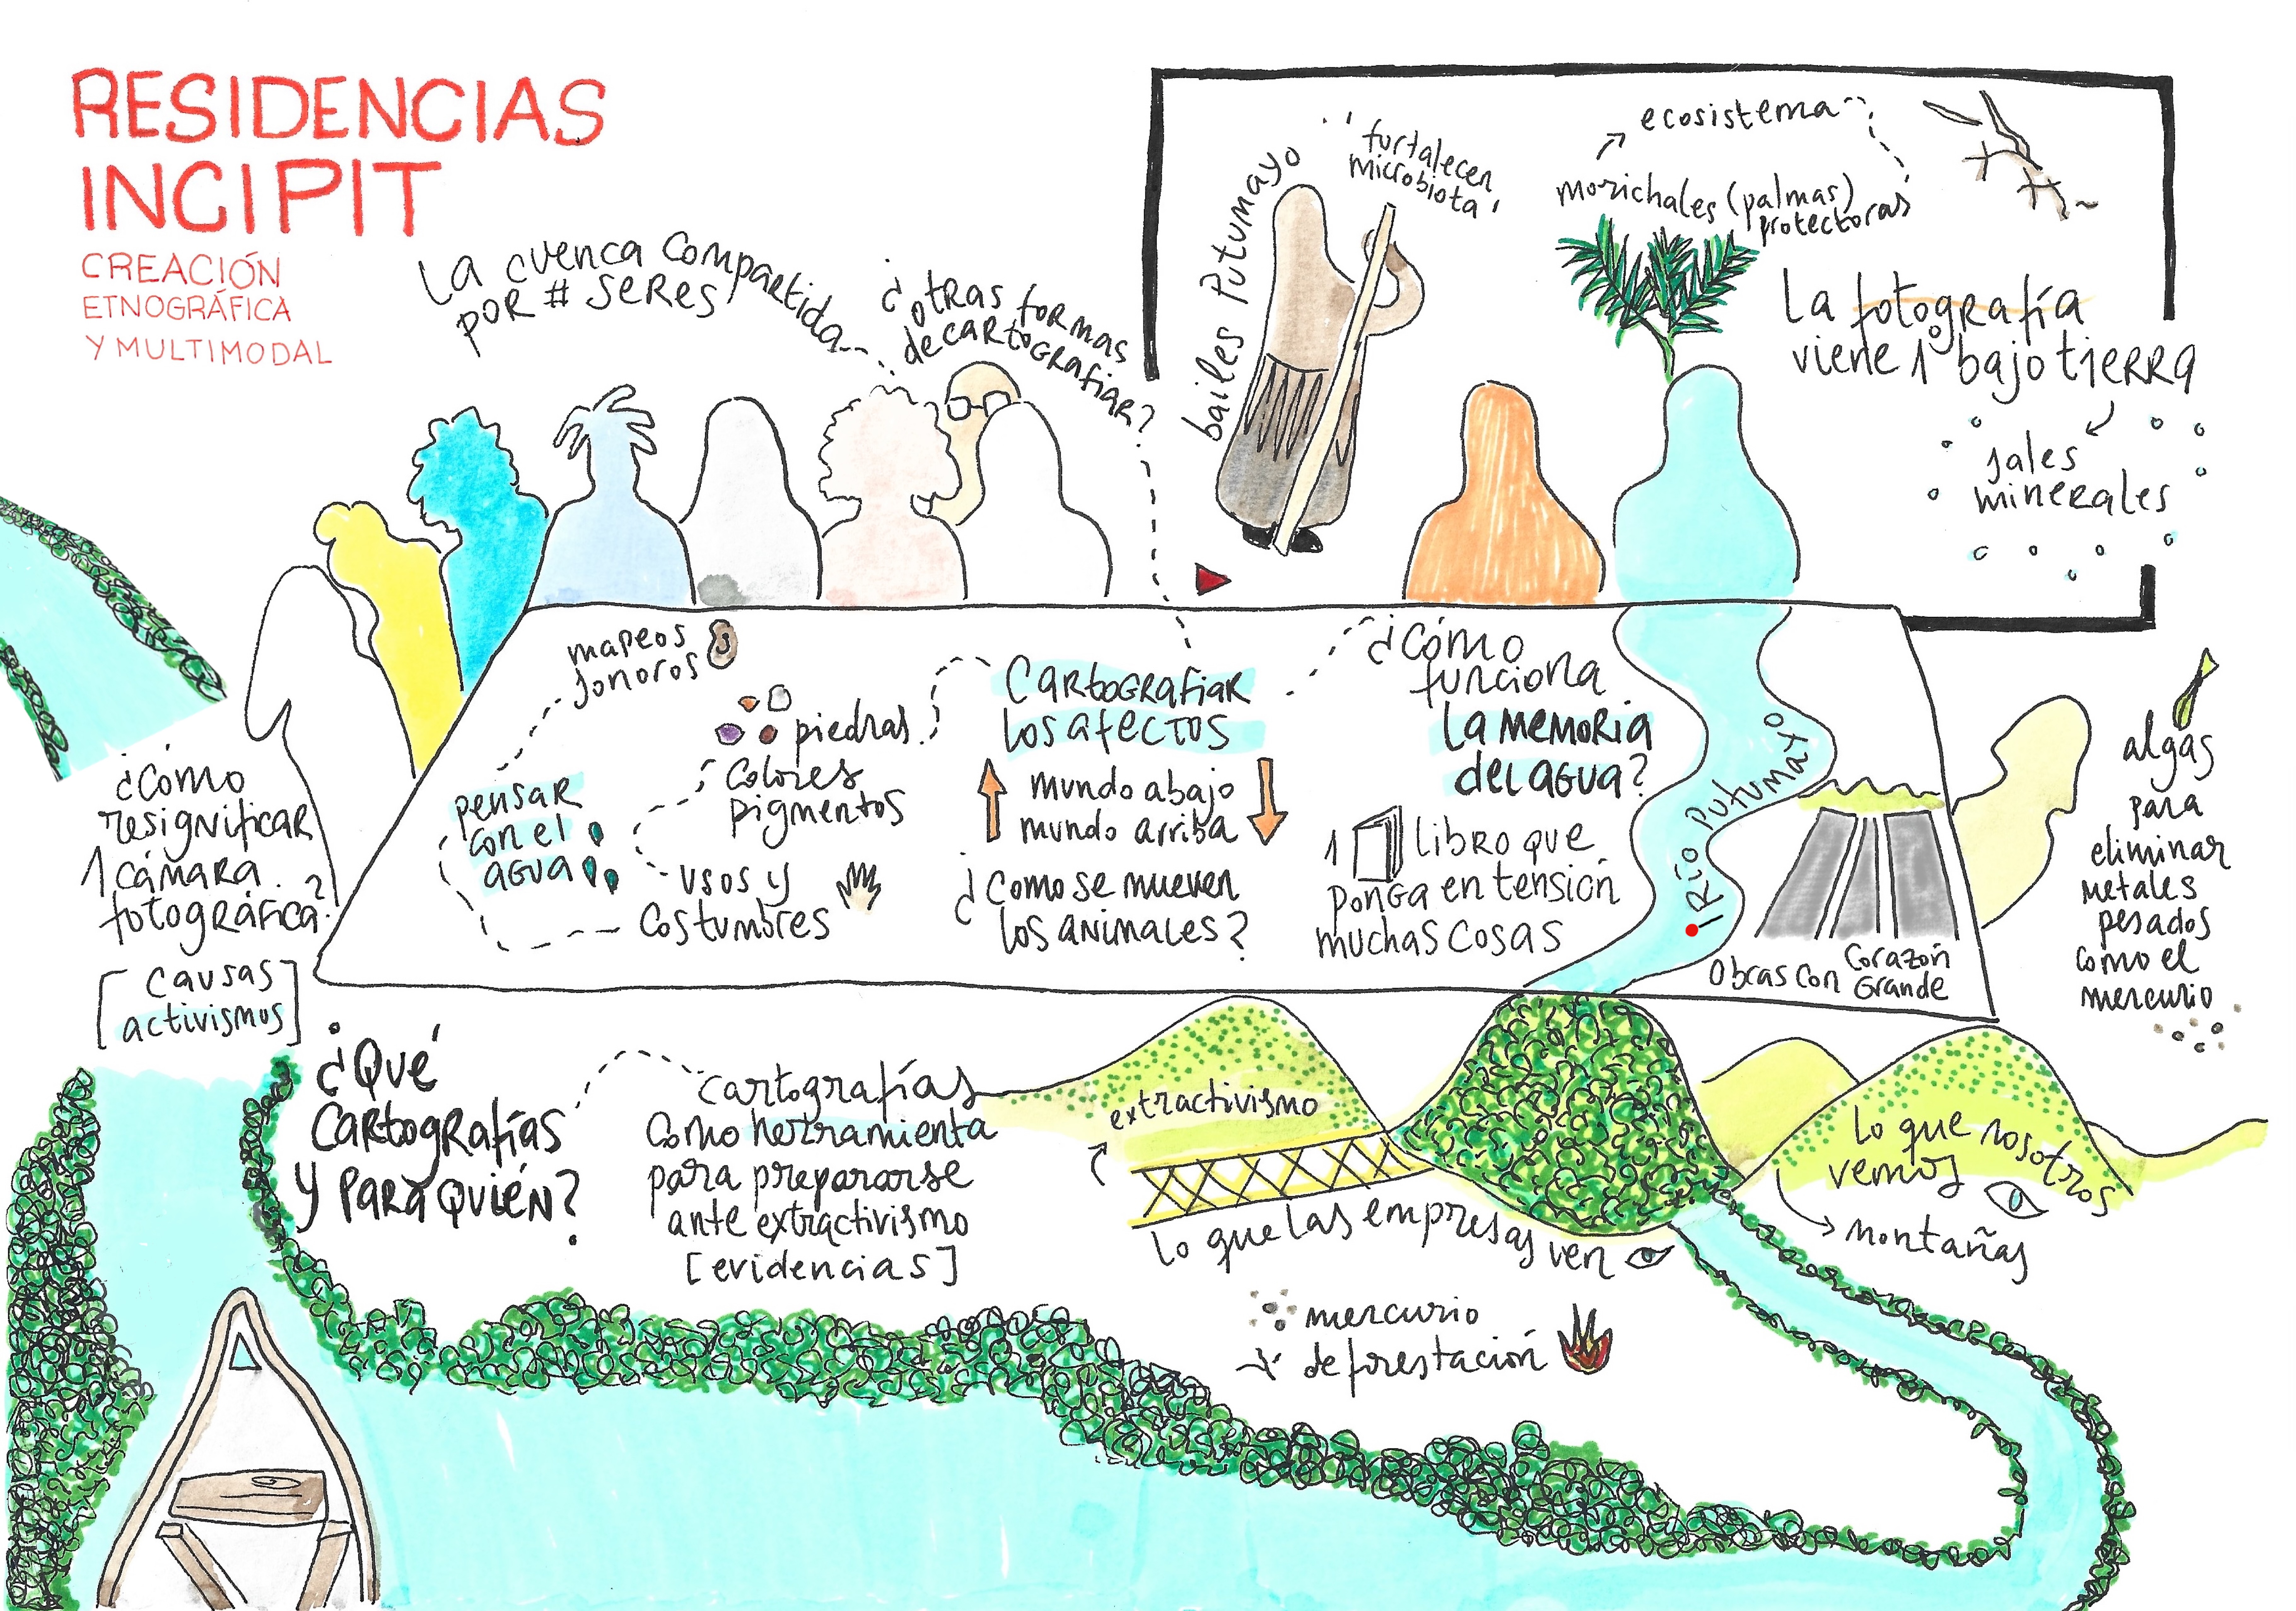 RESIDENCIAS
INCIPIT
CREACIÓN
ETNOGRÁFICA
Y MULTIMODAL
La cuenca compartida
por # seres
¿otras formas
de cartografiar?
bailes Putumayo
fortalecen
microbiota
ecosistema
morichales (palmas)
protectoras
La fotografía
viene 1º bajo tierra
sales
minerales
mapeos
sonoros
piedras
colores
pigmentos
pensar
con el
agua
usos y
costumbres
Cartografiar
los afectos
mundo abajo
mundo arriba
¿Como se mueven
los animales?
¿Cómo
funciona
la memoria
del agua?
1 libro que
ponga en tensión
muchas cosas
Río Putumayo
Obras con Corazón
Grande
algas
para
eliminar
metales
pesados
como el
mercurio
¿Cómo
resignificar
1 cámara
fotográfica?
[causas
activismos]
¿Qué
cartografías
y para quién?
cartografías
como herramienta
para prepararse
ante extractivismo
[evidencias]
extractivismo
lo que las empresas ven
mercurio
deforestación
lo que nosotros
vemos
montañas